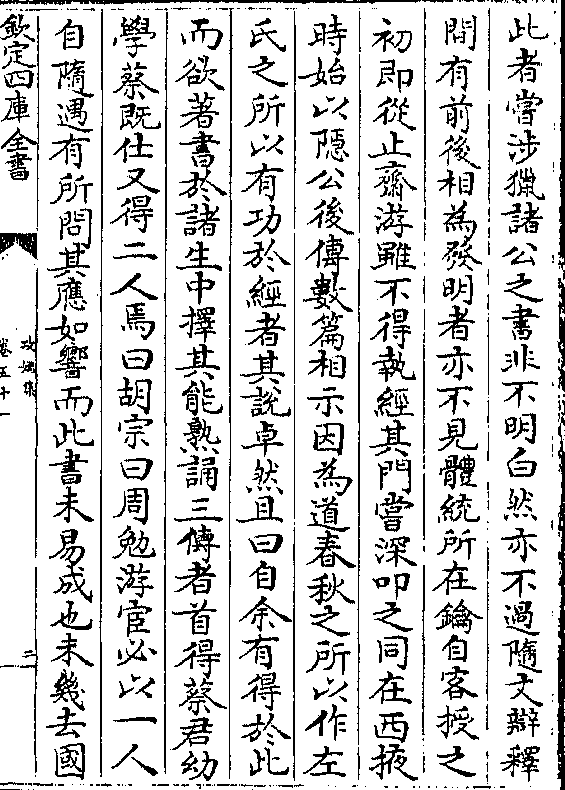 此者嘗涉獵諸公之書非不明白然亦不過隨文辯釋
間有前後相為發明者亦不見體統所在鑰自客授之
初即從止齋游雖不得執經其門嘗深叩之同在西掖
時始以隱公後傳數篇相示因為道春秋之所以作左
氏之所以有功於經者其說卓然且曰自余有得於此
而欲著書於諸生中擇其能熟誦三傳者首得蔡君幼
學蔡既仕又得二人焉曰胡宗曰周勉游宦必以一人
自隨遇有所問其應如響而此書未易成也未幾去國
欽定四庫全書
攻媿集
卷五十一
二